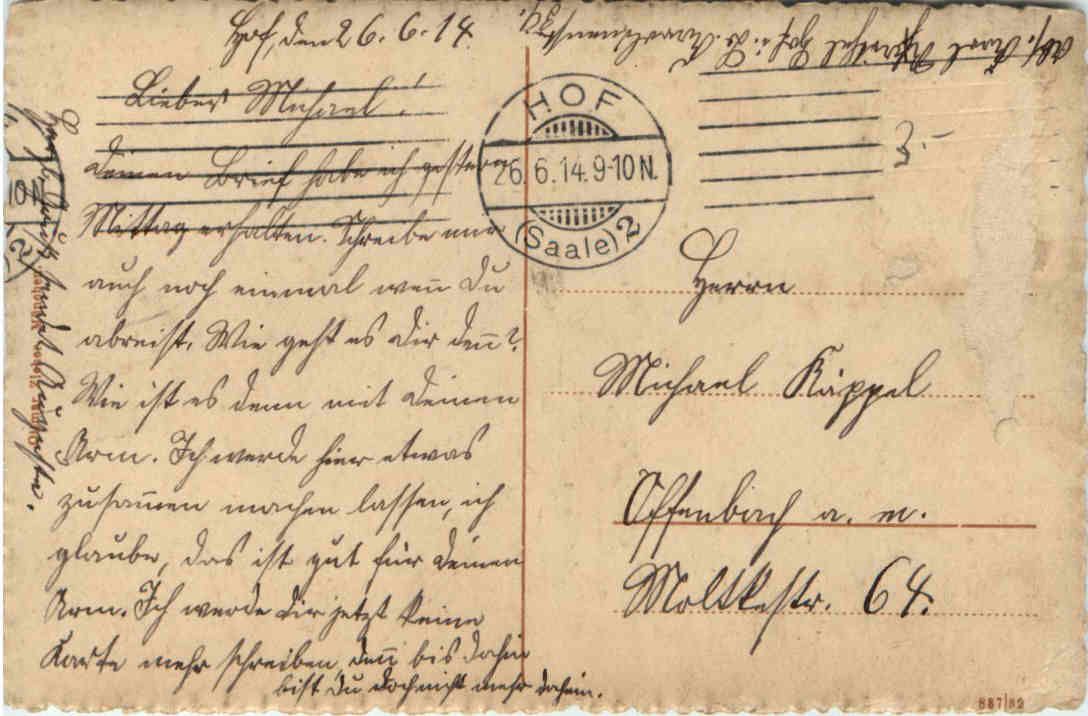 Hof, den 26.6.14.
Lieber Michael!
Deinen Brief habe ich gestern
Mittag erhalten. Schreibe mir
auch noch einmal wen̅ Du
abreist. Wie geht es Dir den̅?
Wie ist es denn mit Deinen
Arm. Ich werde hier etwas
zusam̅en machen lassen, ich
glaube, das ist gut für Deinen
Arm. Ich werde Dir jetzt keine
Karte mehr schreiben, den̅ bis dahin
bist Du doch nicht mehr daheim.
Herzl. Gruß sendet Auguste.
Abs. Karl Hof i. B.
HOF
26.6.14.9-10N.
(Saale) 2
3.-
Herrn
Michael Käppel
Offenbach a. M.
Moltkestr. 64.
887/82